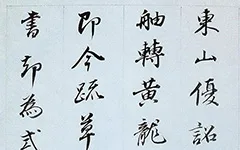 東山優詔
舳轉黃龍
即今疏草
書却為式